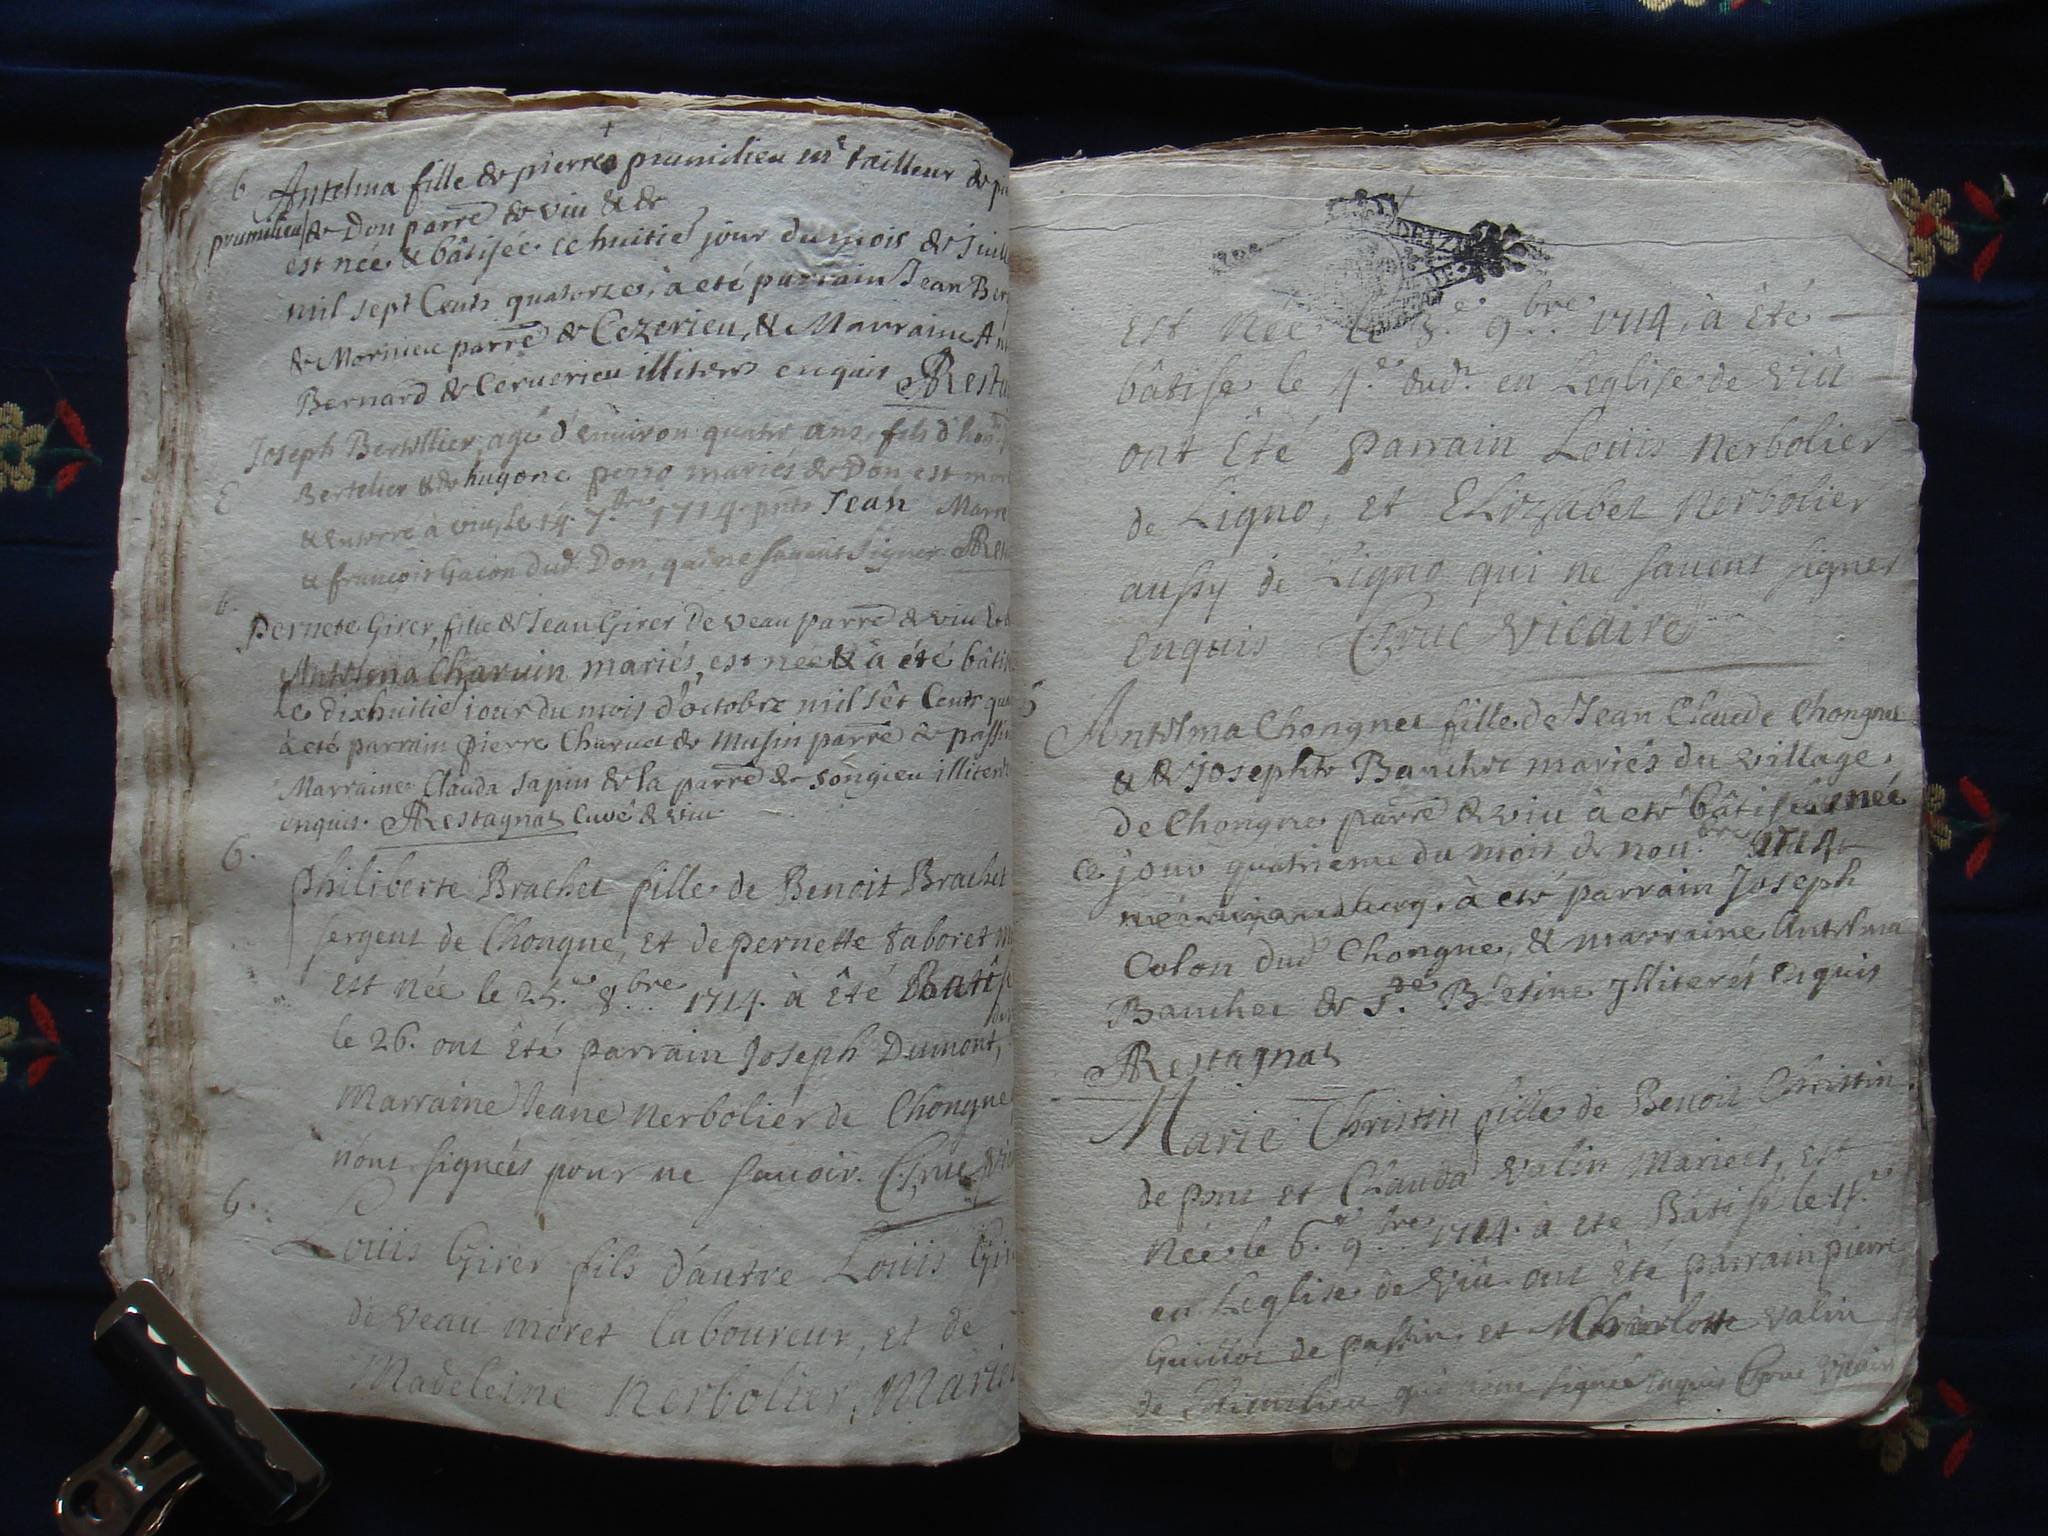 b Antelma fille de pierre prumilieu me tailleur de
prumilieu de Don parre de viu & de
est née & bâtisée ce huitie jour du mois de Juill
mil sept Cents quatorze, à eté parrain Jean Ber
de Mornieu parre de Cezerieu, & Marraine An
Bernard de Ceruerieu illiters enquis Resta
Joseph Bertellier, agé d'enuiron quatre ans, fils d'hon
Bertelier & de hugone perro mariés de Don est mor
& enterré à viu, le 14. 7bre 1714. pnts Jean Marn
& francois Gacon dud. Don, qui ne sauent signer Res
b.
pernete Girer, fille de Jean Girer De veau parre de viu & d
Antelma Charuin mariés, est née & à été bâtis
Le dixhuitie iour du mois d'octobre mil sêt Cents qua
à eté parrain pierre Charuet de Musin parre de passin
Marraine Clauda Sapin de la parre de songieu illiters
enquis. Restagnat Curé de viu
6.
philiberte Brachet fille de Benoit Brachet
sergent de Chongne, et de pernette taboret
est née le 25.e 8.bre 1714. à êté Batis
le 26. ont êté parrain Joseph Dumont,
Marraine Jeane nerbolier de Chongne
nont signées pour ne sauoir. Cruc vic
6.
Loüis Girer fils d'autre Loüis Gir
de veau moret laboureur, et de
Madeleine nerbolier, Marie
est née le 3.e 9.bre 1714, à êté
bâtise le 4.e dud.t en Leglise de viü
ont êté parrain Loüis nerbolier
de Ligno, et Elizabet nerbolier
aussy de Ligno qui ne sauent signer
enquis Cruc vicaire
Antelma Chongnet fille de Jean Claude Chongnet
& de josephte Banchet mariés du village
de Chongne parre de viu à eté bâtisée née
ce jour quatrieme du mois de nou.bre 1714
à eté parrain Joseph
Colon dud Chongne, & marraine Antelma
Banchet de S.t Blesine Illiterés enquis
Restagnat
Marie Christin fille de Benoit Christin
de pont et Clauda valin Mariees, est
née le 6.e 9.bre 1714. à eté Bâtisé le
en Leglise de viü ont êté parrain pierre
Guilliot de passin, et Charlotte valin
de prumilieu qui nont signée enquis Cruc vicaire